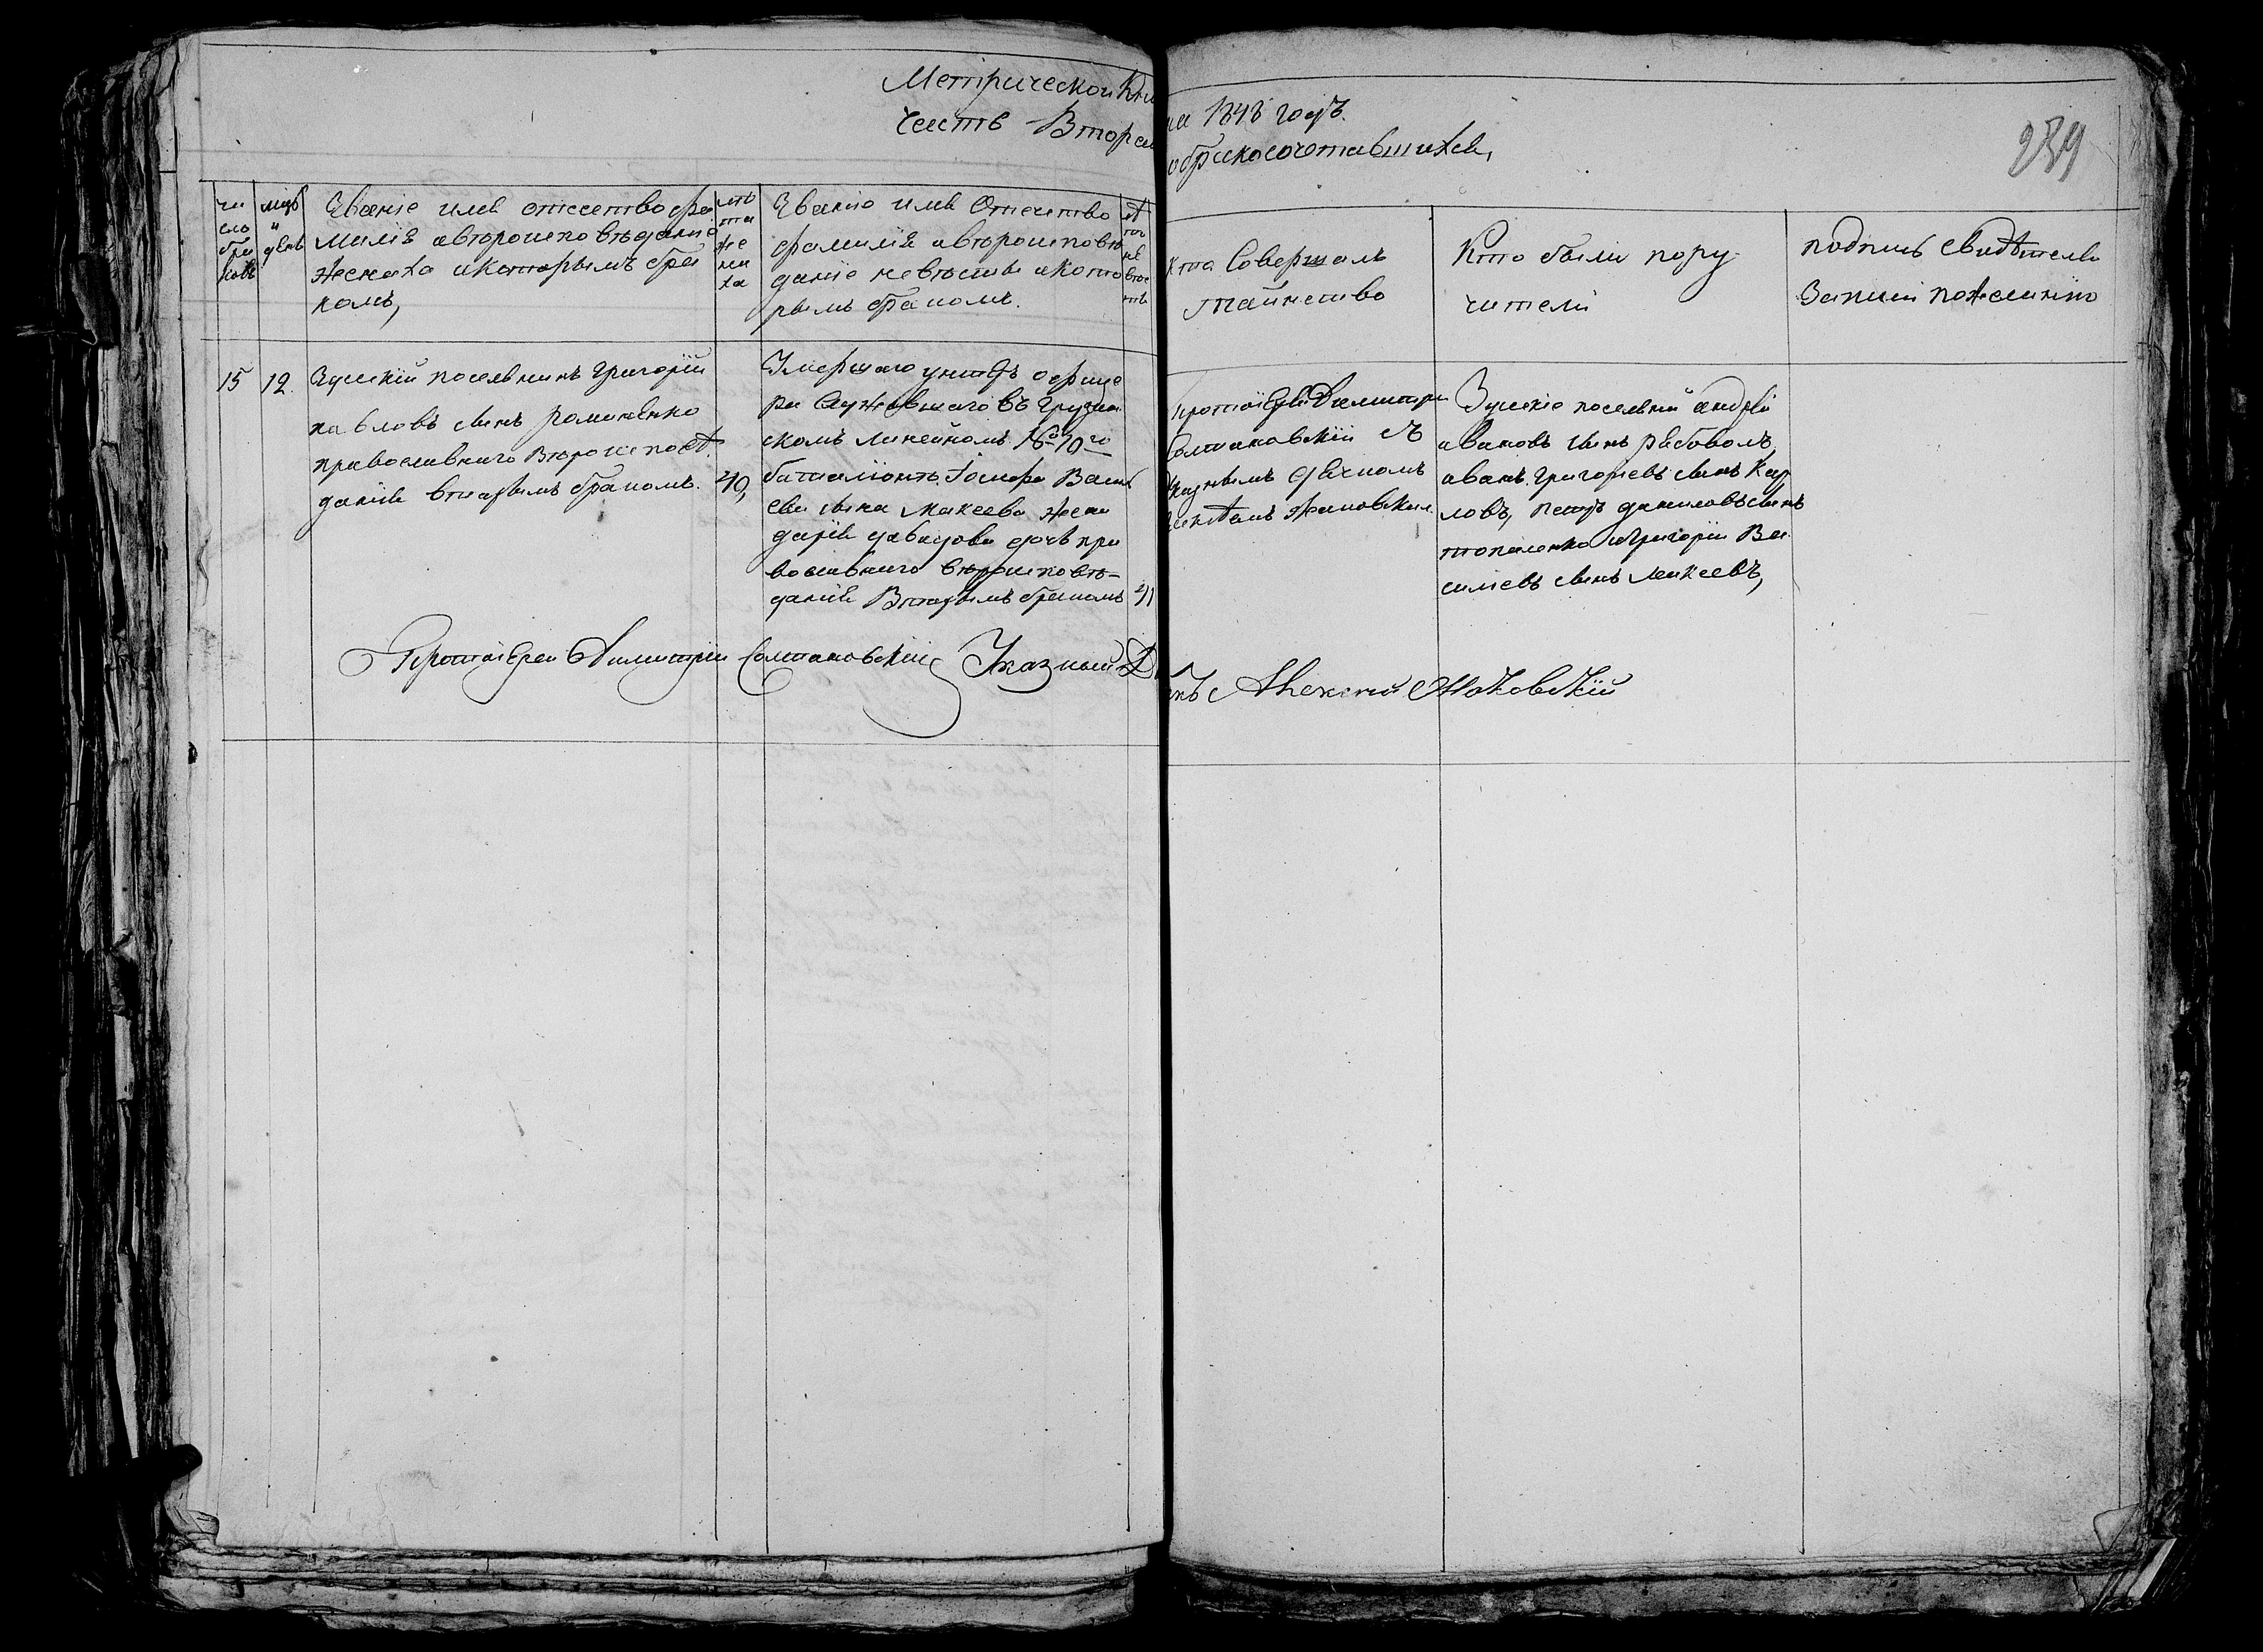 Метрической Кни
на 1848 годъ.
Часть Вторая
о бракосочетавшихся,
239
чи
сло
бра
ковъ
мцъ
и
день
Званіе имя отечество фа
милія авѣроисповѣданіе
жениха икоторымъ бра
комъ,
лѣ
та
же
ни
ха
Званіе имя Отечество
фамилія авѣроисповѣ
даніе невѣсты икото
рымъ бракомъ.
лѣ
та
не
вѣс
ты
Кто Совершалъ
таинство
Кто были пору
чители
подпись свидѣтелей
Записи пожеланію
15 12. Зуцкій поселянинъ Григорій
павловъ сынъ романенко
православнаго Вѣроисповѣ
данія вторымъ бракомъ. 40,
Умершаго унтеръ офице
ра Служившаго въ Грузин
скомъ Линейномъ № 10го
баталіонѣ Іосифа Васил
ева сына Макеева жена
дарія давыдова дочь пра
вославнаго вѣроисповѣ-
данія Вторымъ бракомъ 41
Протоіерей Димитри
Солтановскій съ
Указнымъ дьячкомъ
Жаховским
Зуцкіе поселяни андрей
ивановъ сынъ рябоволъ,
иванъ Григорьевъ сынъ Кар
повъ, петръ даниловъ сынъ
топаленко иГригорій Ва
силіевъ сынъ Макеевъ,
Протоіерей Димитрій Солтановскій Указный Д
къ Алексей Жаховскій